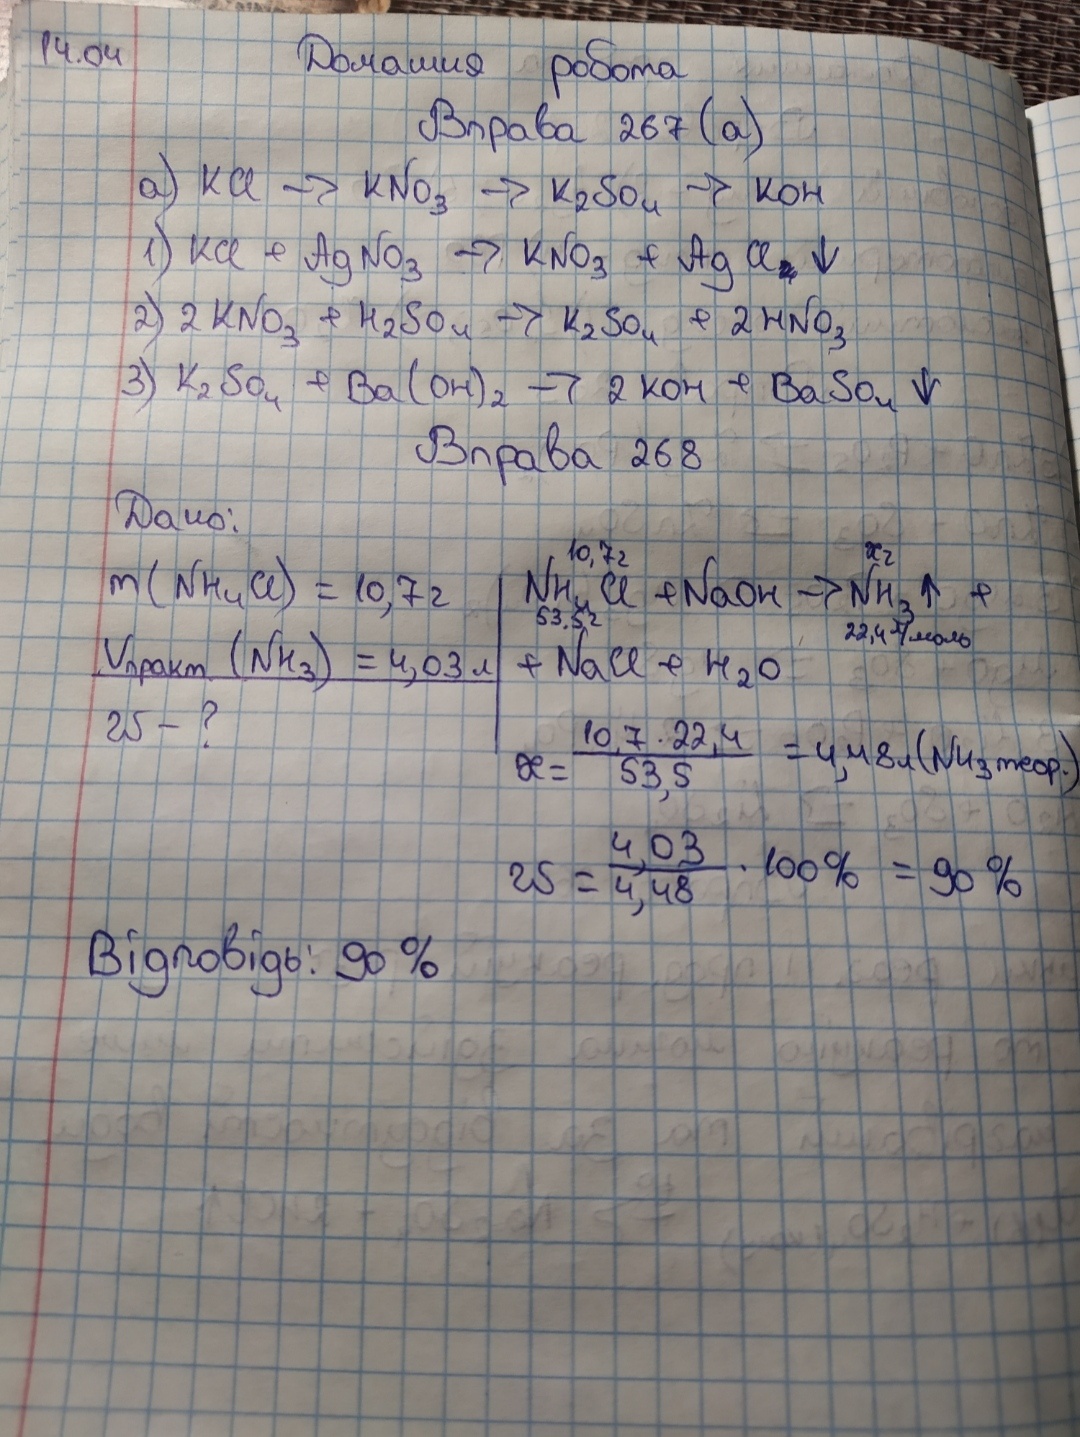 14.04 Домашня робота
Вправа 267 (а)
а) KCl → KNO₃ → K₂SO₄ → KOH
1) KCl + AgNO₃ → KNO₃ + AgCl ↓
2) 2KNO₃ + H₂SO₄ → K₂SO₄ + 2HNO₃
3) K₂SO₄ + Ba(OH)₂ → 2KOH + BaSO₄ ↓
Вправа 268
Дано:
10,7г xг
m(NH₄Cl) = 10,7г NH₄Cl + NaOH → NH₃↑ +
53,5г 22,4 л/моль
Vпракт (NH₃) = 4,03 л + NaCl + H₂O
η - ?
x = 10,7 · 22,4 / 53,5 = 4,48 л (NH₃ теор.)
η = 4,03 / 4,48 · 100% = 90%
Відповідь: 90%